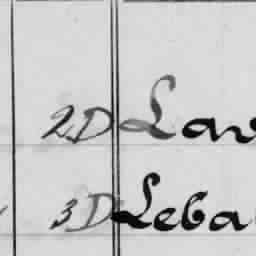 2D Lav
3D Leba